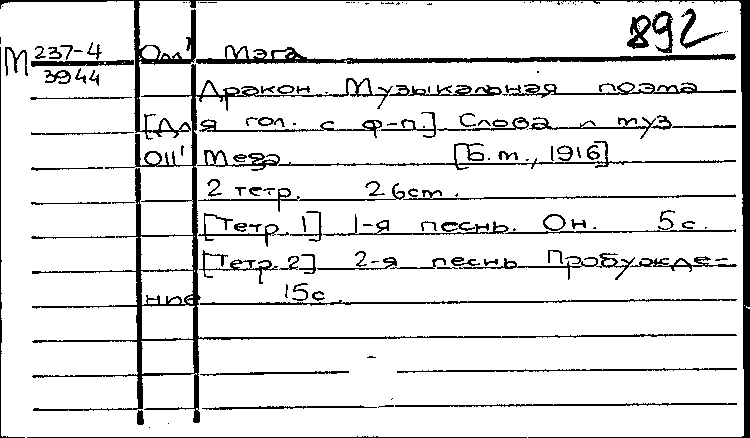 892
М 237-4 Олл' Мэга
3944
Дракон. Музыкальная поэма
[Для гол. с ф-п.] Слова и муз
Олl' Мега. [Б.м., 1916]
2 тетр. 26 см.
[Тетр. 1] 1-я песнь. Он. 5 с.
[Тетр. 2] 2-я песнь Пробужде=
ние 15с.